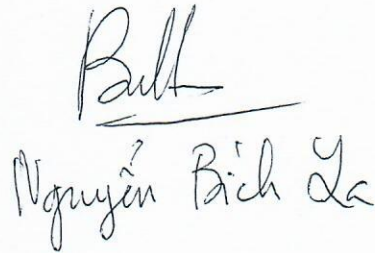 Nguyễn Bích La